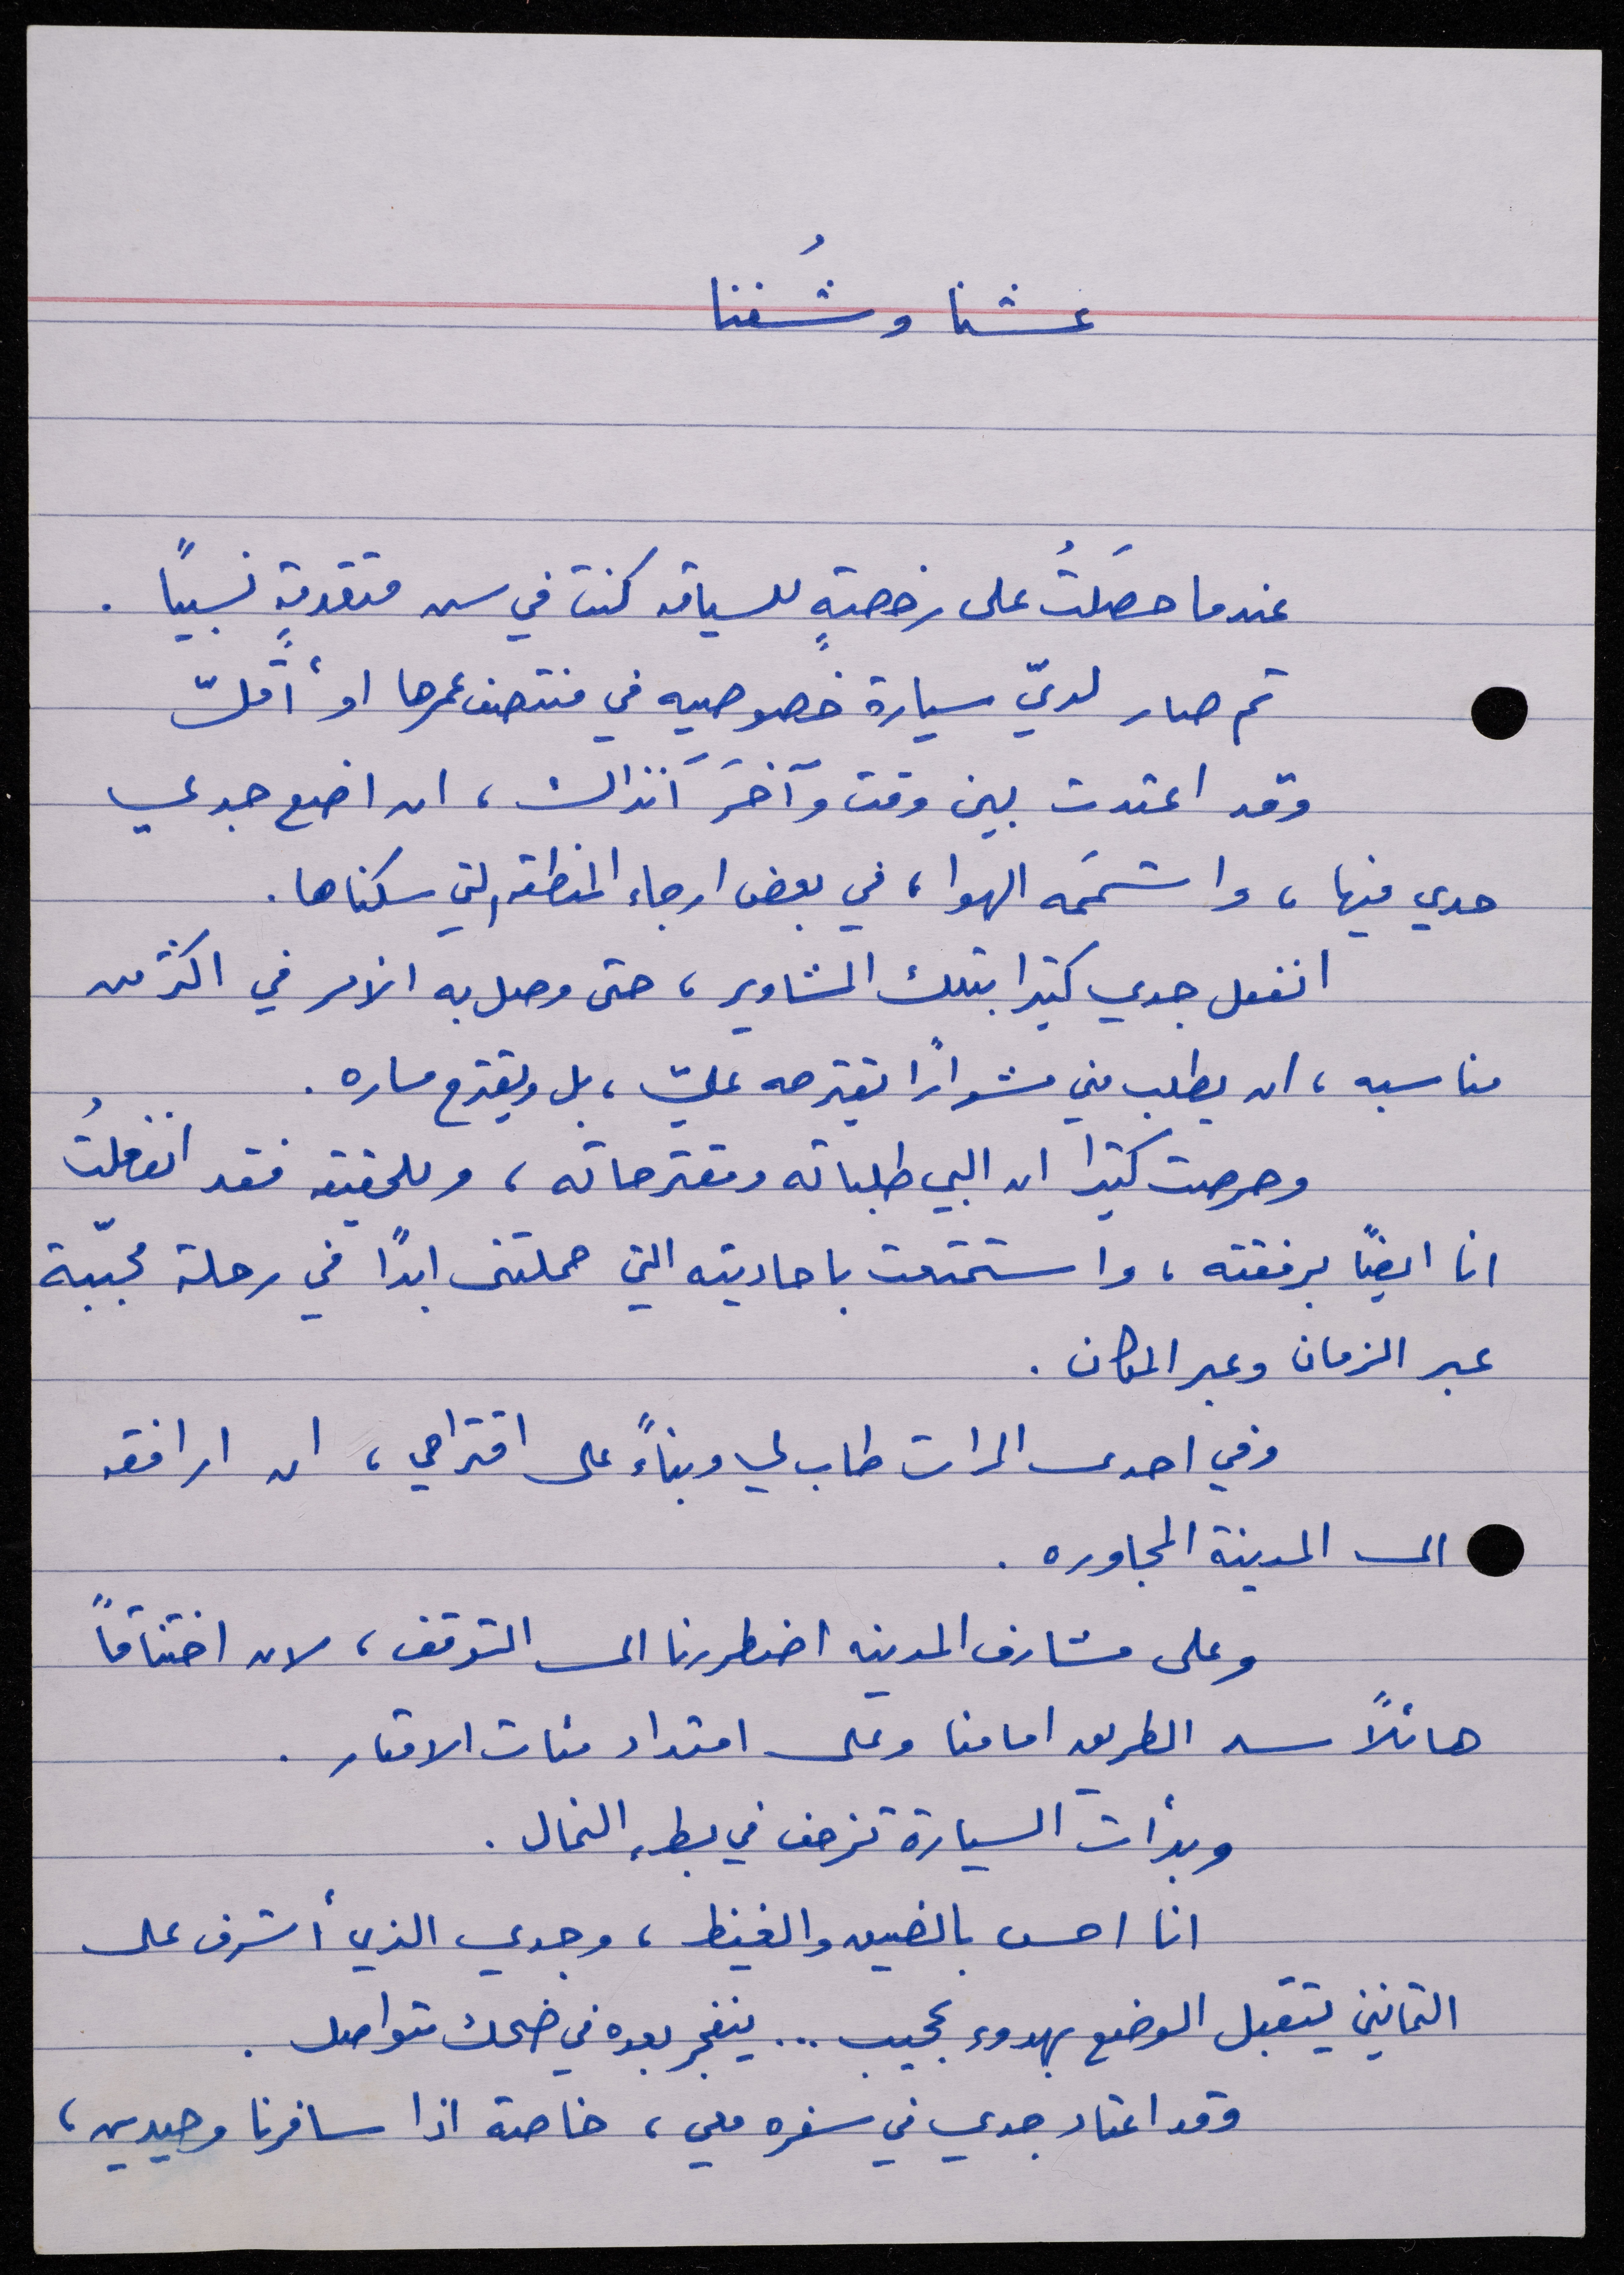 عشنا وشُفنا
عندما حصَلتُ على رخصةٍ للسياقه كنت في سن متقدمةٍ نسبيًا .
ثم صار لديّ سيارة خصوصيه في منتصف عمرها او أقلّ
وقد اعتدت بين وقت وآخَر آنذاك ، ان اضع جدي
حدي فيها ، واشممَه الهوا ، في بعض ارجاء المنطقه التي سكناها .
انفعل جدي كثيرا بتلك المشاوير ، حتى وصل به الامر في اكثر من
مناسبه ، ان يطلب مني مشوارًا يقترحه عليّ ، بل ويقترح مساره .
وحرصت كثيرا ان البي طلباته ومقترحاته ، وللحقيقه فقد انفعلتُ
انا ايضًا برفقته ، واستمتعت باحاديثه التي حملتنى ابدًا في رحلة محبّبة
عبر الزمان وعبر المكان .
وفي احدى المرات طاب لي وبناءً على اقتراحي ، ان ارافقه
الى المدينة المجاوره .
وعلى مشارف المدينه اضطررنا الى التوقف ، لان اختناقاً
هائلاً سد الطريق امامنا وعلى امتداد مئات الامتار .
وبدأت السيارة تزحف في بطء النمال .
انا احس بالضيق والغيظ ، وجدي الذي أشرف على
الثمانين يتقبل الوضع بهدوء عجيب ... ينفجر بعده في ضحك متواصل .
وقد اعتاد جدي في سفره معي ، خاصة اذا سافرنا وحيدين ،